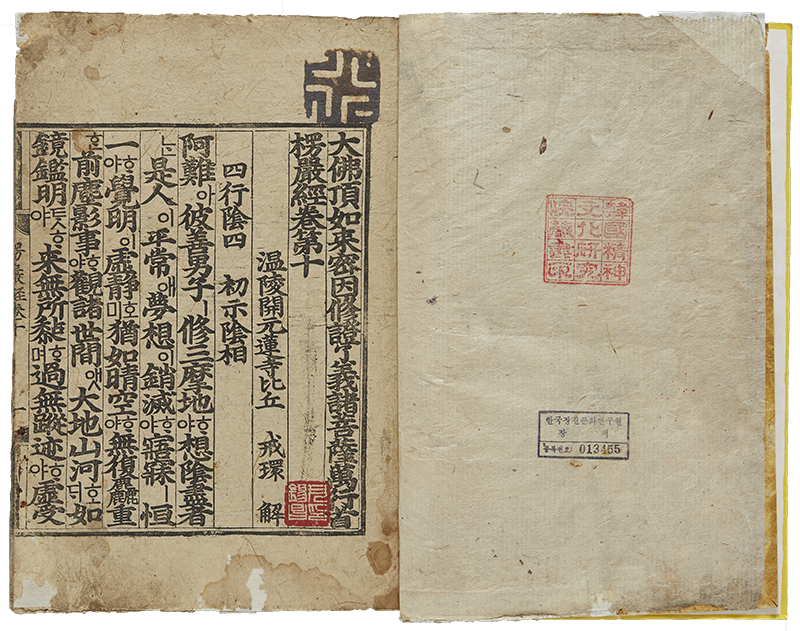 大佛頂如來密因修證了義諸菩薩萬行首
楞嚴經卷第十
温陵開元蓮寺比丘 戒環 解
四行陰四 初示陰相
阿難아彼善男子ㅣ修三摩地ᄒᆞ야想陰盡者
ᄂᆞᆫ是人이平常애夢想이銷滅ᄒᆞ야寤寐ㅣ恒
一ᄒᆞ야覺明이虛靜호미猶如晴空ᄒᆞ야無復麤重
ᄒᆞᆫ前塵影事ᄒᆞ야觀諸世間앳大地山河호ᄃᆡ如
鏡鑑明ᄃᆞᆺᄒᆞ야來無所黏ᄒᆞ며過無蹤迹ᄒᆞ야虛受
楞嚴經卷十 一
韓國精神
文化硏究
院藏書印
한국정신문화연구원
장 서
등록번호: 013455